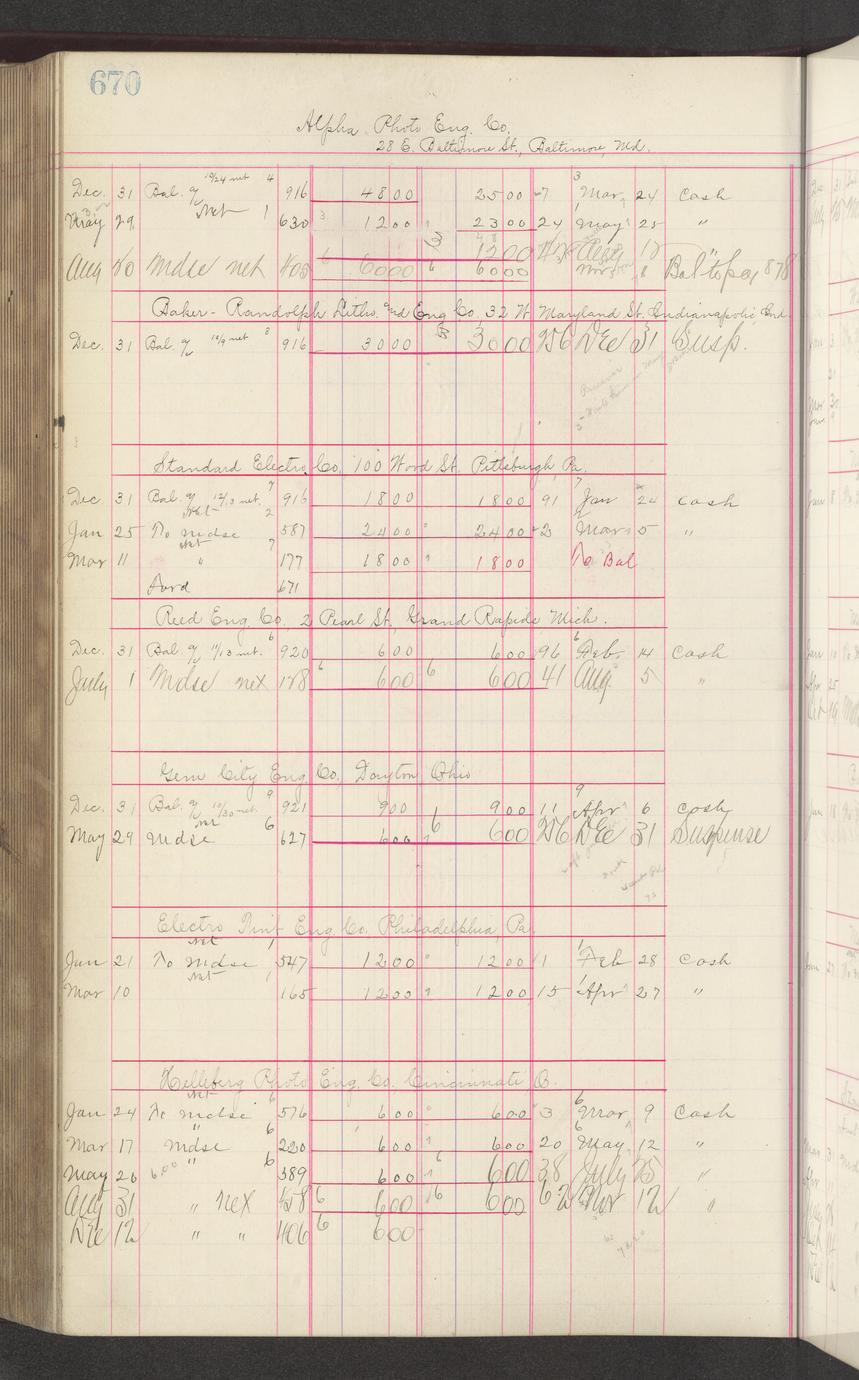 670
Alpha Photo Eng. Co.
28 E. Baltimore St., Baltimore, Md.
Dec. 31 Bal. 10/24 net 4 916 48 00 25 00 7 3 Mar 24 Cash
May 29 Net 1 630 12 00 23 00 24 May 25 "
12 00
Aug 20 Mdse net 6 60 00 6 60 00 Nov 8
Baker-Randolph Litho. and Eng Co. 32 W Maryland St. Indianapolis, Ind.
Dec. 31 Bal. 10/9 net 8 916 30 00 30 00 256 Dec 31 Susp.
Standard Electro. Co. 100 Wood St. Pittsburgh, Pa.
Dec 31 Bal. 12/3 net. 7 916 18 00 18 00 91 7 Jan 24 Cash
Jan 25 To mdse Net 2 587 24 00 24 00 23 Mar 5 "
Mar 11 Net " 7 177 18 00 18 00 To Bal
Ford 671
Reed Eng. Co. 2 Pearl St., Grand Rapids Mich.
Dec. 31 Bal. 11/13 net. 6 920 6 00 6 00 96 6 Feb. 14 Cash
July 1 Mdse net 128 6 6 00 6 6 00 41 Aug. 5 "
Gem City Eng. Co. Dayton Ohio
Dec. 31 Bal. 10/30 net. 9 921 9 00 9 00 11 9 Apr 6 Cash
May 29 mdse net 6 627 6 00 6 6 00 256 Dec 31 Suspense
Electro Tint Eng. Co. Philadelphia, Pa.
Jan 21 To mdse net 1 547 12 00 12 00 1 1 Feb 28 Cash
Mar 10 net 1 165 12 00 12 00 15 1 Apr 27 "
Helleberg Photo Eng. Co. Cincinnati O.
Jan 24 To mdse net 6 576 6 00 6 00 3 6 Mar 9 Cash
Mar 17 mdse " 6 220 6 00 6 00 20 6 May 12 "
May 26 6.00 " 6 589 6 00 6 6 00 38 July 25 "
Aug 31 " net 458 6 6 00 6 6 00 62 Nov 12 "
Dec 12 " " 1106 6 6 00